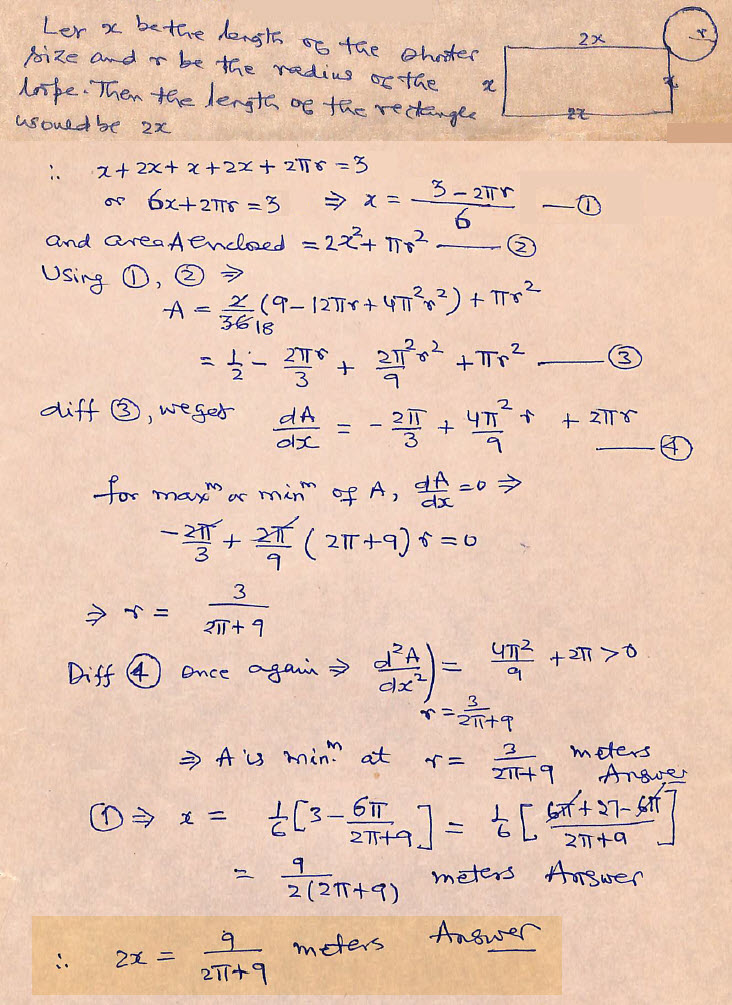 Let x be the length of the shorter
size and r be the radius of the
loope. Then the length of the rectangle
would be 2x
2x
r
x
x
2x
∴ x + 2x + x + 2x + 2πr = 3
or 6x + 2πr = 3 ⇒ x = (3 − 2πr)/6 — ①
and area A enclosed = 2x² + πr² — ②
Using ①, ② ⇒
A = 2/36 18 (9 − 12πr + 4π²r²) + πr²
= 1/2 − 2πr/3 + 2π²r²/9 + πr² — ③
diff ③, we get dA/dx = − 2π/3 + 4π²r/9 + 2πr — ④
for maxᵐ or minᵐ of A, dA/dx = 0 ⇒
− 2π/3 + 2π/9 (2π + 9) r = 0
⇒ r = 3/(2π + 9)
Diff ④ once again ⇒ d²A/dx²) r = 3/(2π+9) = 4π²/9 + 2π > 0
⇒ A is min.ᵐ at r = 3/(2π+9) meters Answer
① ⇒ x = 1/6 [3 − 6π/(2π+9)] = 1/6 [(6π + 27 − 6π)/(2π+9)]
= 9/(2(2π+9)) meters Answer
∴ 2x = 9/(2π+9) meters Answer